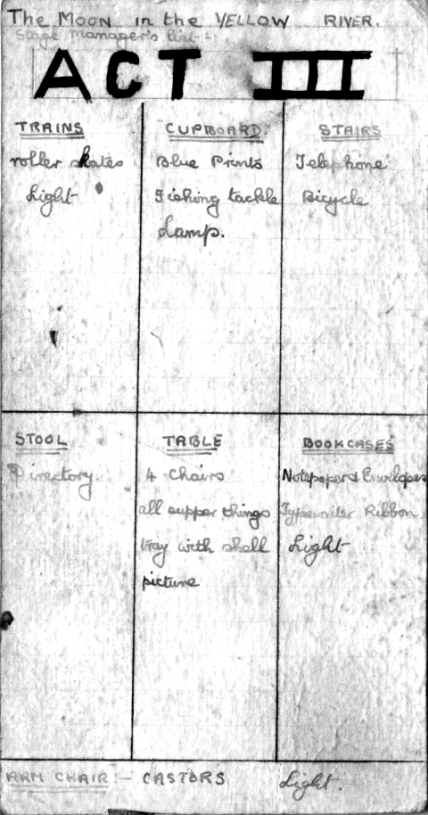 The Moon in the YELLOW RIVER.
Stage Manager's List
ACT III
TRAINS
roller skates
Light
CUPBOARD
Blue Prints
Fishing tackle
Lamp.
STAIRS
Telephone
Bicycle
STOOL
Directory
TABLE
4 Chairs
all supper things
tray with shell
picture
BOOKCASES
Notepaper & Envelopes
Typewriter Ribbon
Light
ARM CHAIR :- CASTORS Light.